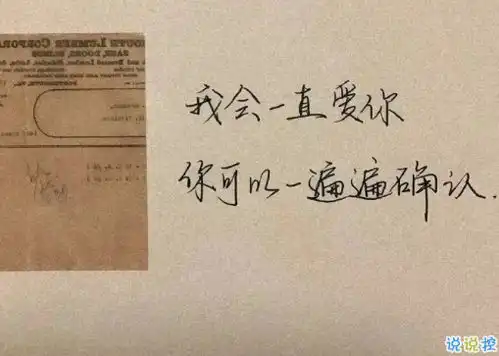 SOUTH LUMBER CORPORA
SASH, DOORS, BLINDS
我会一直爱你
你可以一遍遍确认.
说说控